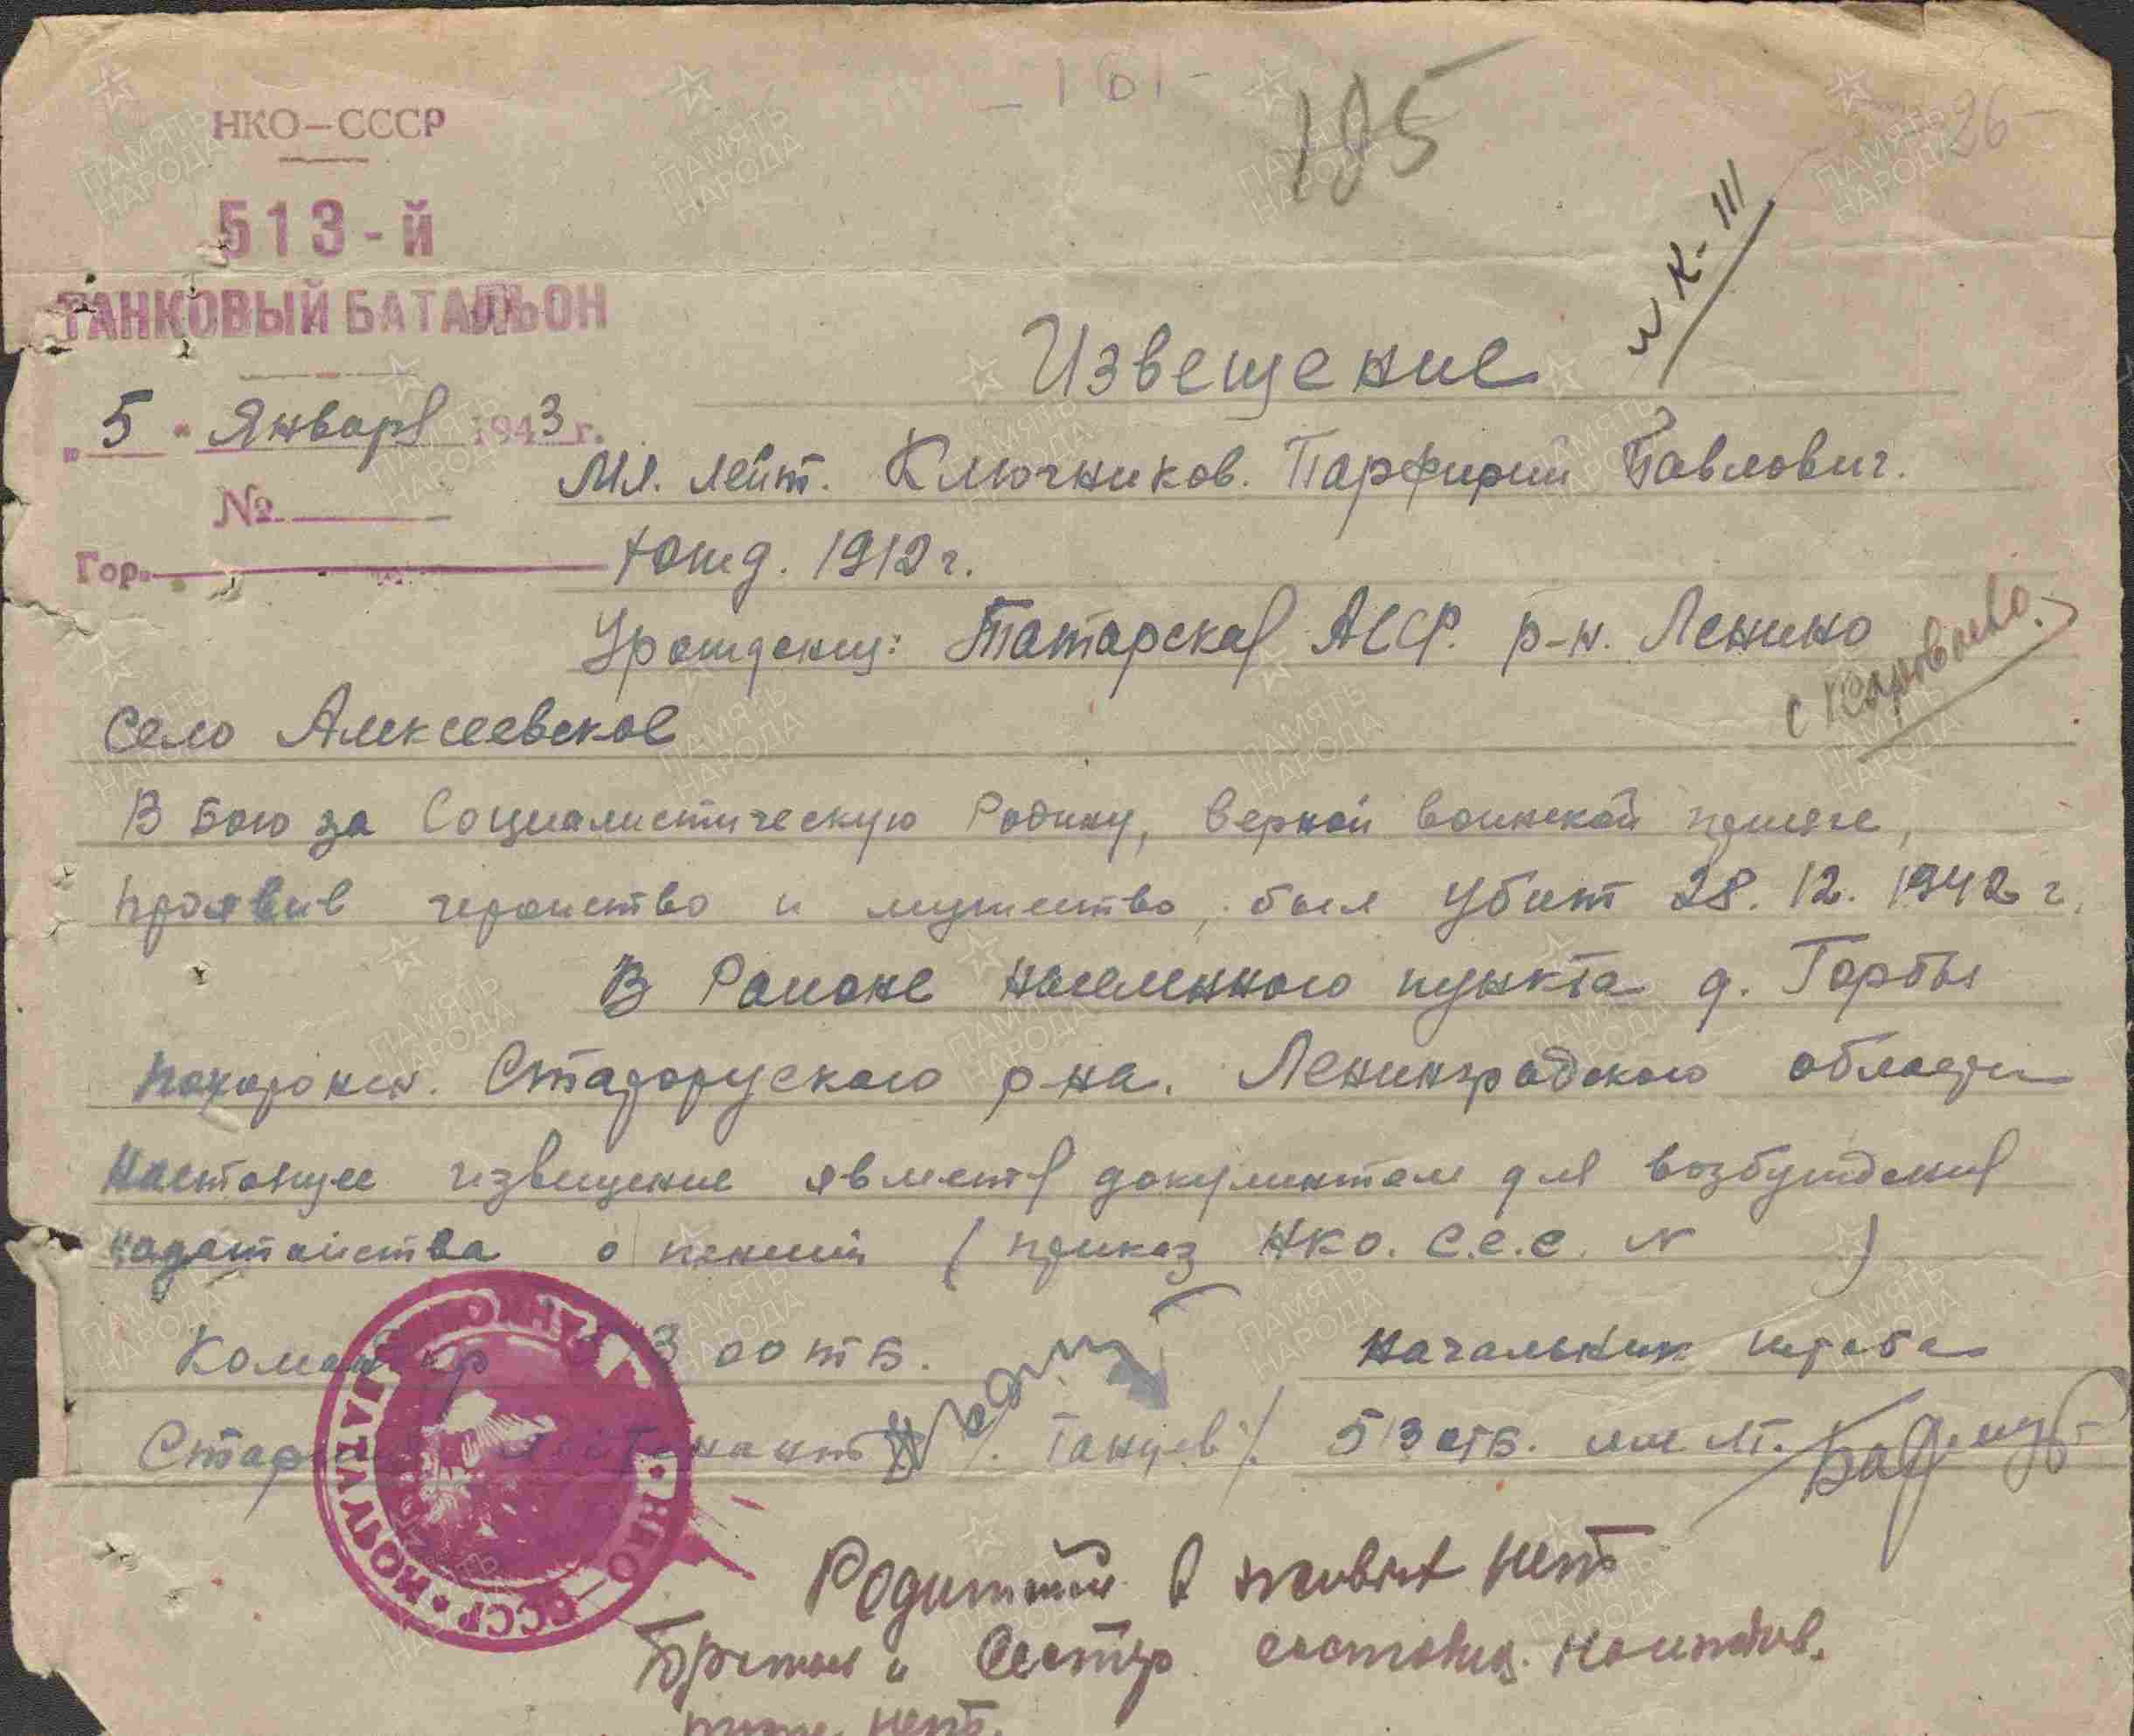 - 161 -
195
26-
НКО–СССР
513-й
ТАНКОВЫЙ БАТАЛЬОН
w К-III
Извещение
„5" Января 1943 г.
Мл. лейт. Ключников. Парфирий Павлович.
№
Гор.
рожд. 1912 г.
Урожденец: Татарская АССР. р-н. Ленино
с
Село Алексеевское
В бою за Социалистическую Родину, верной воинской присяге,
проявив геройство и мужество, был убит 28. 12. 1942 г.
В Районе населенного пункта д. Горбы
похоронен. Старорусского р-на. Ленинградского области
Настоящее извещение является документом для возбуждения
ходатайства о пенсии ( приказ НКО. С.С.С. N )
Командир 513 оотб. Начальник штаба
Старший лейтенант /. Танцев /. 513 отб. мл л-т.
СССР • НКО •
Родителей в живых нет
Братьев и Сестер
тоже нет.
ПАМЯТЬ НАРОДА